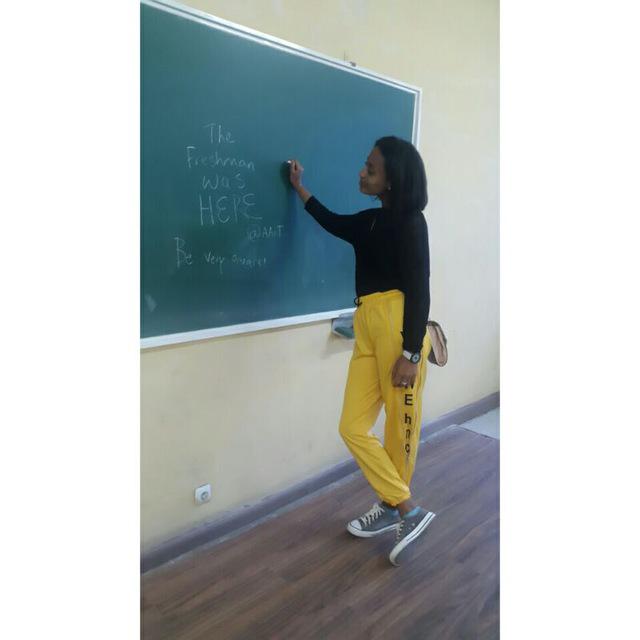 The
Freshman
was
HERE
Be very aware!
E
h
n